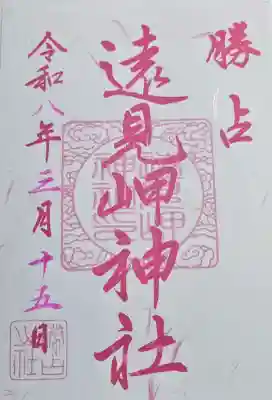 勝占
遠見岬神社
令和八年三月十五日